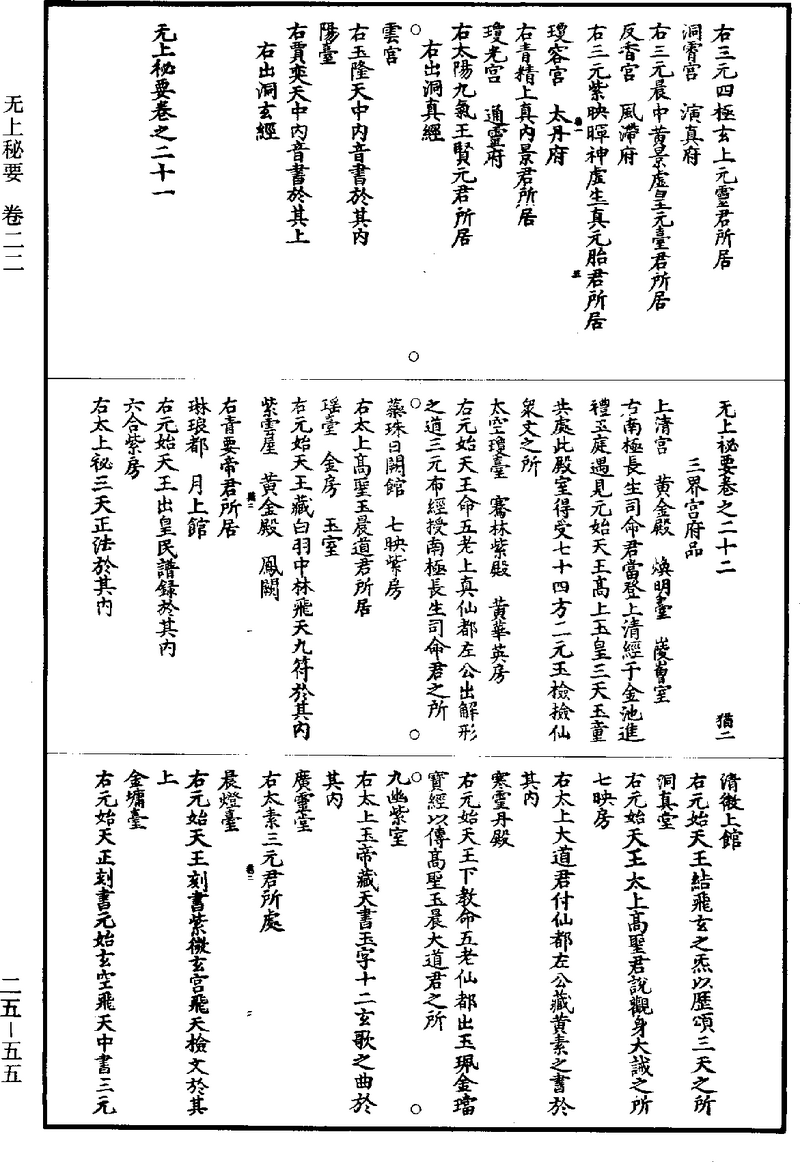 右三元四極玄上元靈君所居
洞霄宮　演真府
右三元晨中黃景虛皇元臺君所居
反香宮　風滯府
右三元紫映暉神虛生真元胎君所居
瓊容宮　太丹府
右青精上真內景君所居
瓊光宮　通靈府
右太陽九氣玉賢元君所居
右出洞真經
雲宮
右玉隆天中內音書於其內
陽臺
右賈奕天中內音書於其上
右出洞玄經
无上秘要卷之二十一
无上祕要卷之二十二　猶二
三界宮府品
上清宮　黃金殿　煥明臺　崚嶒室
右南極長生司命君當登上清經于金池進
禮玉庭遇見元始天王高上玉皇三天玉童
共處此殿室得受七十四方二元玉檢撿仙
衆文之所
太空瓊臺　騫林紫殿　黃華英房
右元始天王命五老上真仙都左公出解形
之道三元布經授南極長生司命君之所
蘂珠日闕館　七映紫房
右太上高聖玉晨道君所居
瑶臺　金房　玉室
右元始天王藏白羽中林飛天九符於其內
紫雲屋　黃金殿　鳳闕
右青要帝君所居
琳琅都　月上館
右元始天王出皇民譜録於其內
六合紫房
右太上祕三天正法於其內
清微上館
右元始天王結飛玄之炁以歷頌三天之所
洞真堂
右元始天王太上高聖君說觀身大誡之所
七映房
右太上大道君付仙都左公藏黃素之書於
其內
寒靈丹殿
右元始天王下教命五老仙都出玉珮金璫
寶經以傳高聖玉晨大道君之所
九幽紫室
右太上玉帝藏天書玉字十二玄歌之曲於
其內
廣靈臺
右太素三元君所處
晨燈臺
右元始天王刻書紫微玄宮飛天檢文於其
上
金墉臺
右元始天正刻書元始玄空飛天中書三元
无上秘要　卷二二
二五－五五